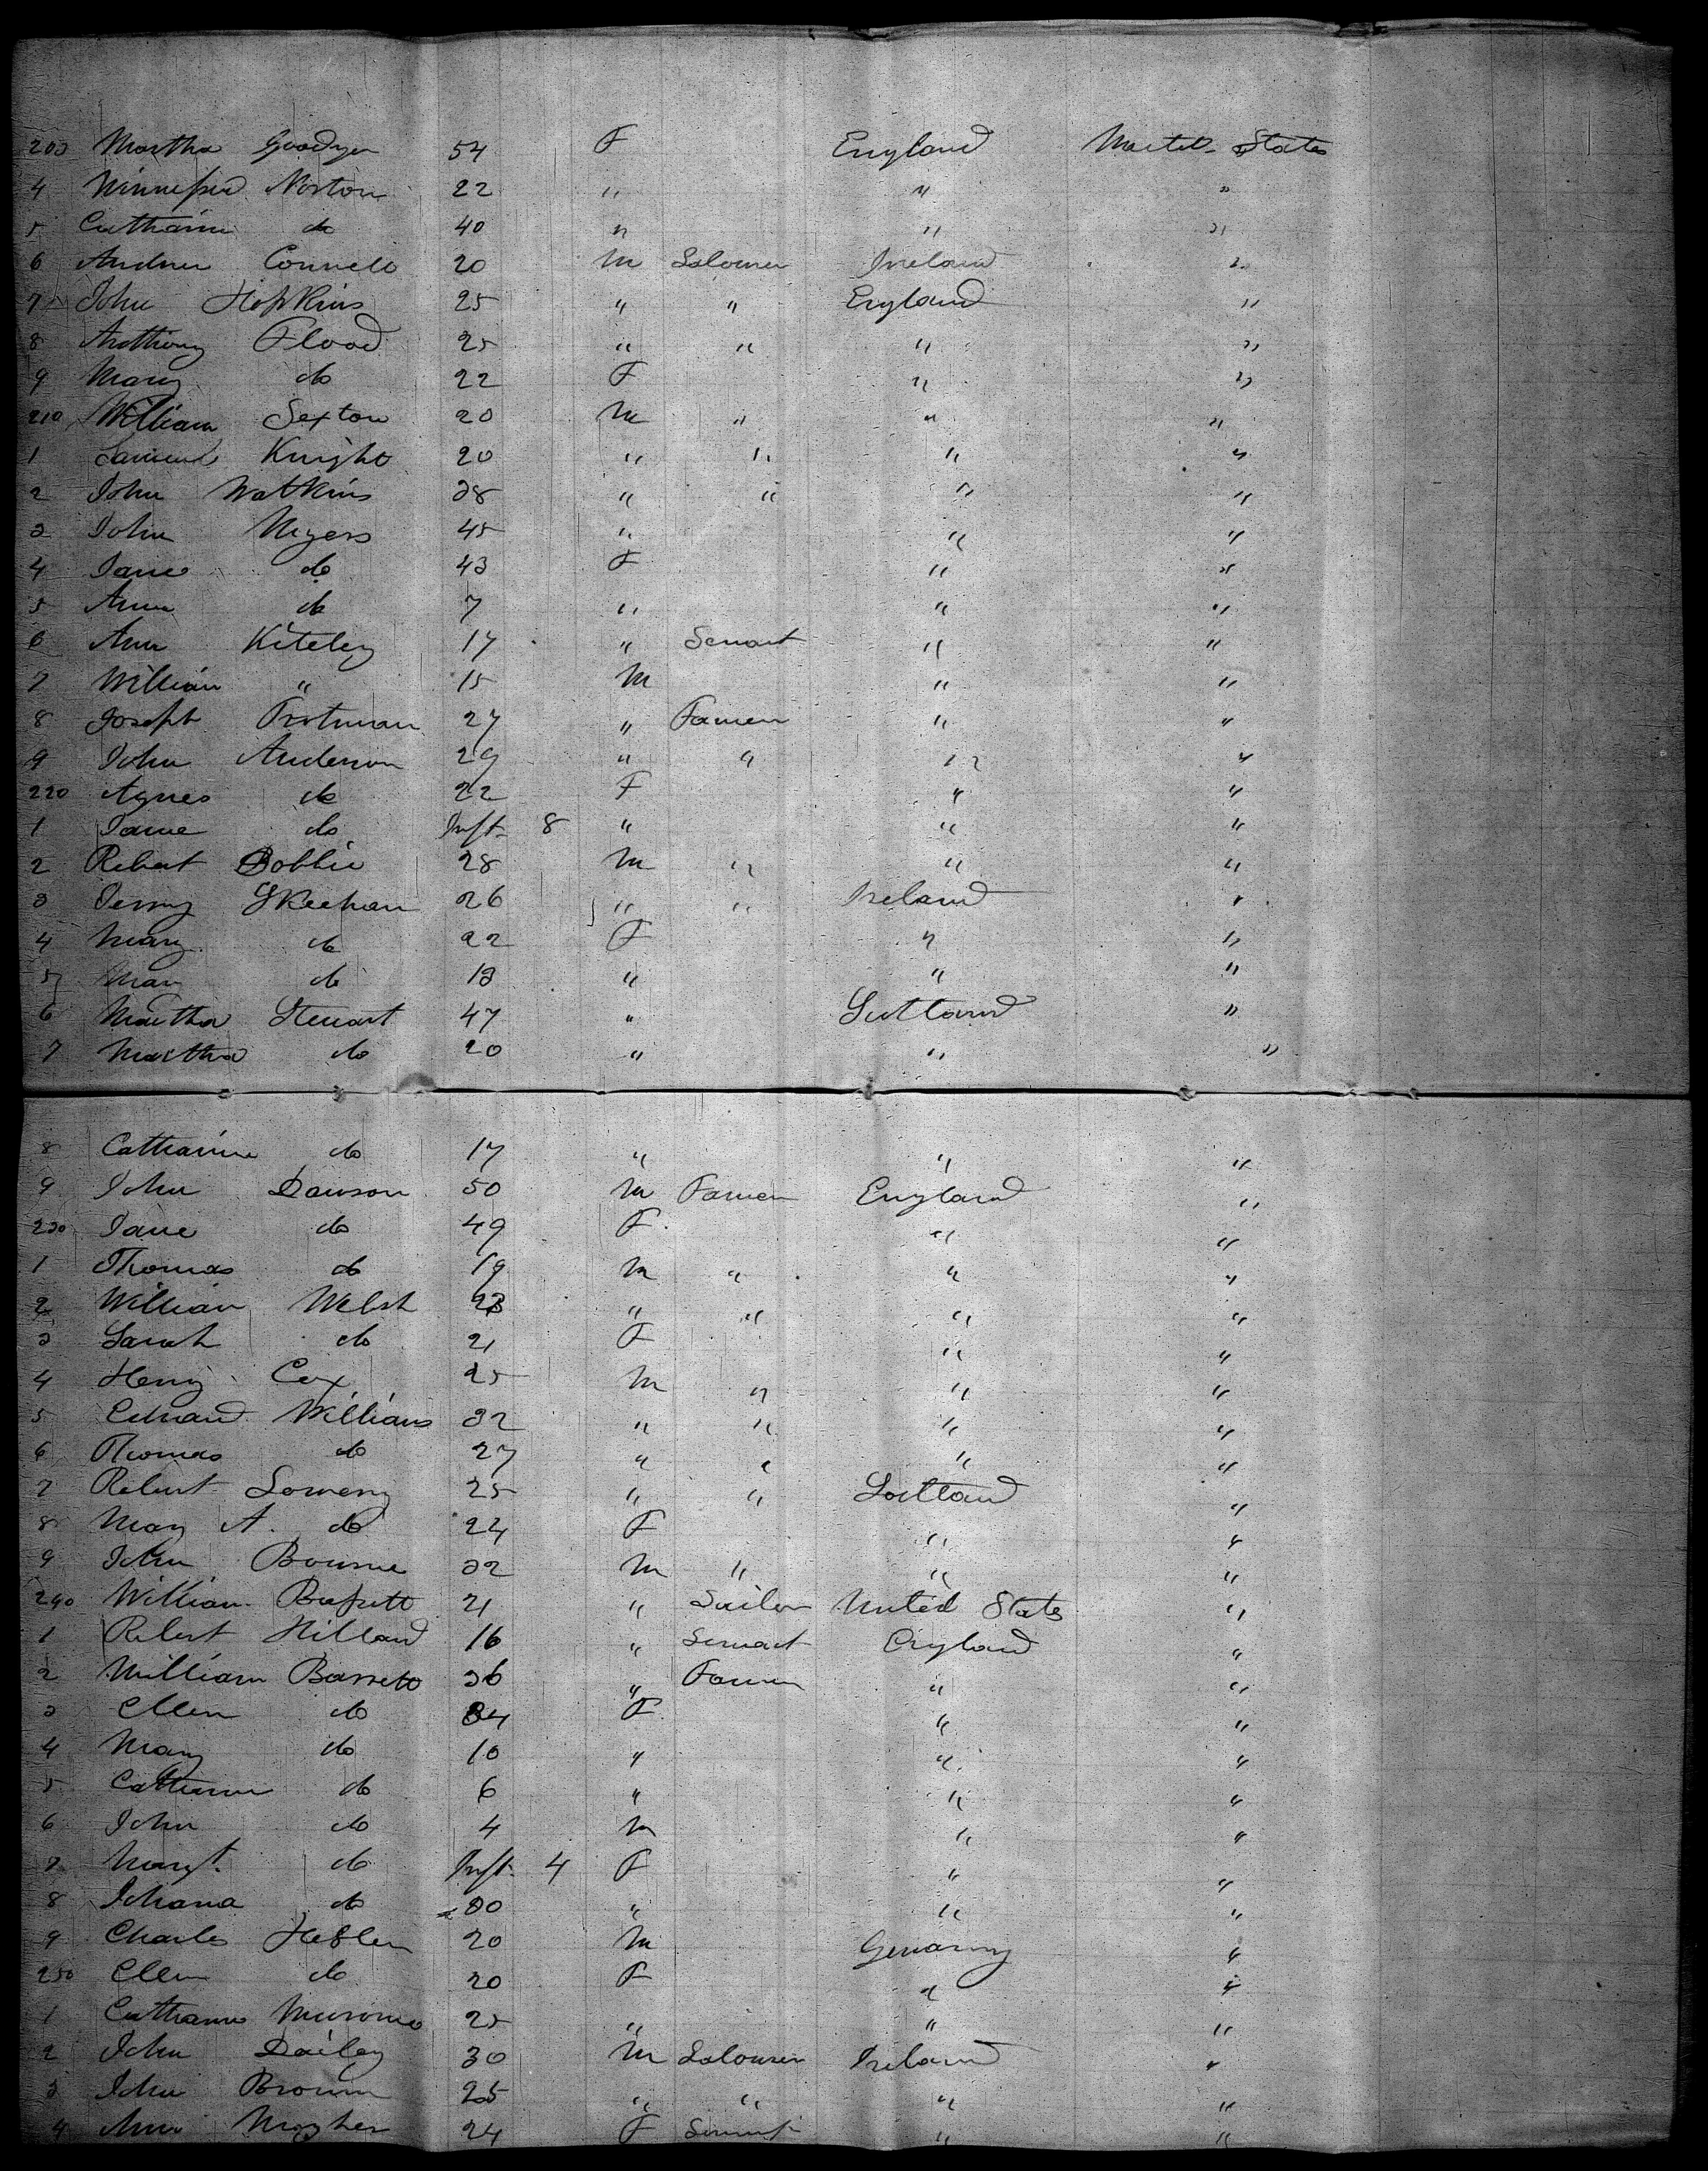 203 Martha Goodyer 54 F England United States
4 Winnefred Norton 22 " " "
5 Catharine do 40 " " "
6 Andrew Connell 20 M Labourer Ireland "
7 John Hopkins 25 " " England "
8 Anthony Flood 25 " " " "
9 Mary do 22 F " "
210 William Sexton 20 M " " "
1 Samuel Knight 20 " " " "
2 John Watkins 38 " " " "
3 John Myers 45 " " "
4 Jane do 43 F " "
5 Ann do 7 " " "
6 Ann Kiteley 17 " Servant " "
7 William " 15 M " "
8 Joseph Trotman 27 " Farmer " "
9 John Anderson 29 " " " "
220 Agnes do 22 F " "
1 Jane do Inft. 8 " " "
2 Robert Dobbie 28 M " " "
3 Jerry Skeehan 26 " " Ireland "
4 Mary do 22 F " "
5 Mary do 13 " " "
6 Martha Stewart 47 " Scotland "
7 Martha do 20 " " "
8 Catharine do 17 " " "
9 John Dawson 50 M Farmer England "
230 Jane do 49 F " "
1 Thomas do 19 M " " "
2 William Welsh 23 " " " "
3 Sarah do 21 F " "
4 Henry Cox 25 M " " "
5 Edward Williams 32 " " " "
6 Thomas do 27 " " " "
7 Robert Lowery 25 " " Scotland "
8 Mary A. do 24 F " "
9 John Bourne 32 M " " "
240 William 21 " Sailor United States "
1 Robert Hilland 16 " Servant England "
2 William Barrett 36 " Farmer " "
3 Ellen do 34 F " "
4 Mary do 10 " " "
5 Catharine do 6 " " "
6 John do 4 M " "
7 Margt. do Inft. 4 F " "
8 Johana do 30 " " "
9 Charles Hebler 20 M Germany "
250 Ellen do 20 F " "
1 Catharine 25 " " "
2 John Dailey 30 M Labourer Ireland "
3 John Brown 25 " " " "
4 Ann Magher 24 F Servant " "